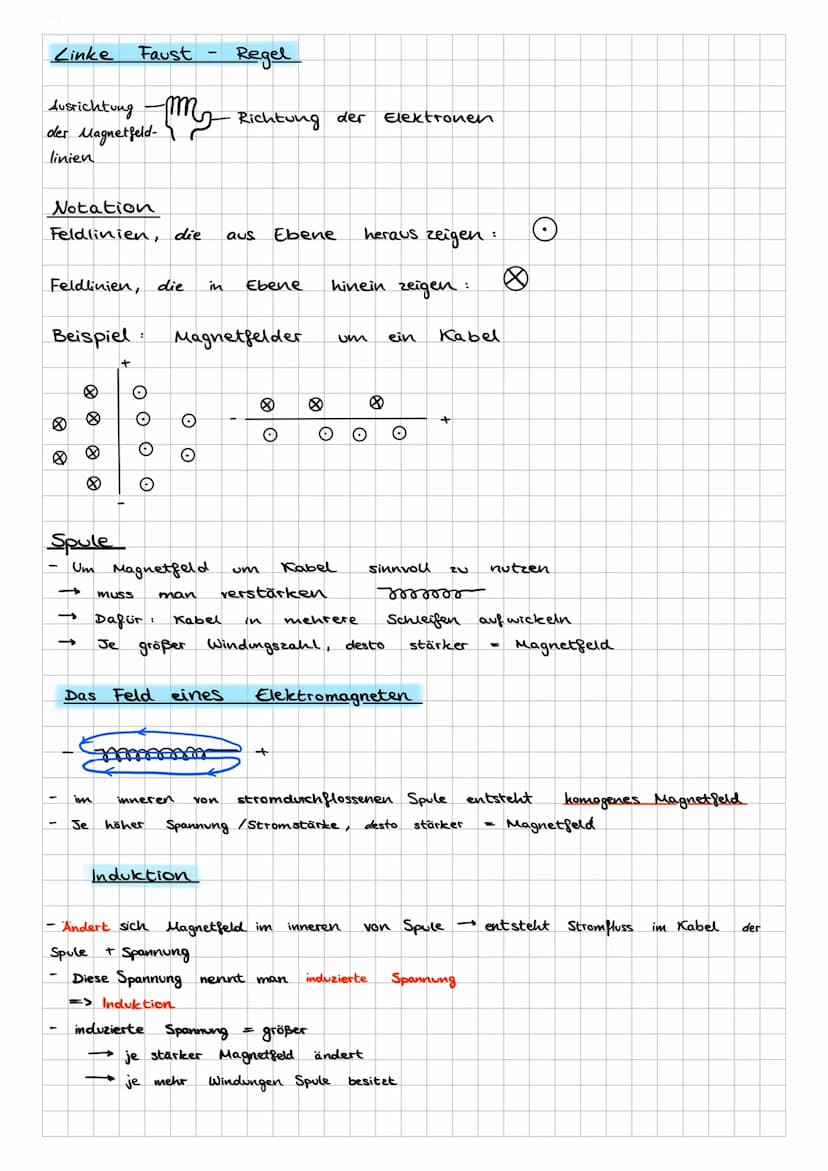 Linke Faust - Regel
Ausrichtung
der Magnetfeld-
linien
Richtung der Elektronen
Notation
Feldlinien, die aus Ebene heraus zeigen: ⊙
Feldlinien, die in Ebene hinein zeigen: ⊗
Beispiel: Magnetfelder um ein Kabel
+
⊗ ⊙
⊗ ⊗ ⊙ ⊙
⊗ ⊗ ⊙ ⊙
⊗ ⊙
-
⊗ ⊗ ⊗
- +
⊙ ⊙ ⊙ ⊙
Spule
- Um Magnetfeld um Kabel sinnvoll zu nutzen
→ muss man verstärken
→ Dafür: Kabel in mehrere Schleifen aufwickeln
→ Je größer Windungszahl, desto stärker = Magnetfeld
Das Feld eines Elektromagneten
- +
- im inneren von stromdurchflossenen Spule entsteht homogenes Magnetfeld
- Je höher Spannung / Stromstärke, desto stärker = Magnetfeld
Induktion
- Ändert sich Magnetfeld im inneren von Spule → entsteht Stromfluss im Kabel der
Spule + Spannung
- Diese Spannung nennt man induzierte Spannung
=> Induktion
- induzierte Spannung = größer
→ je stärker Magnetfeld ändert
→ je mehr Windungen Spule besitzt